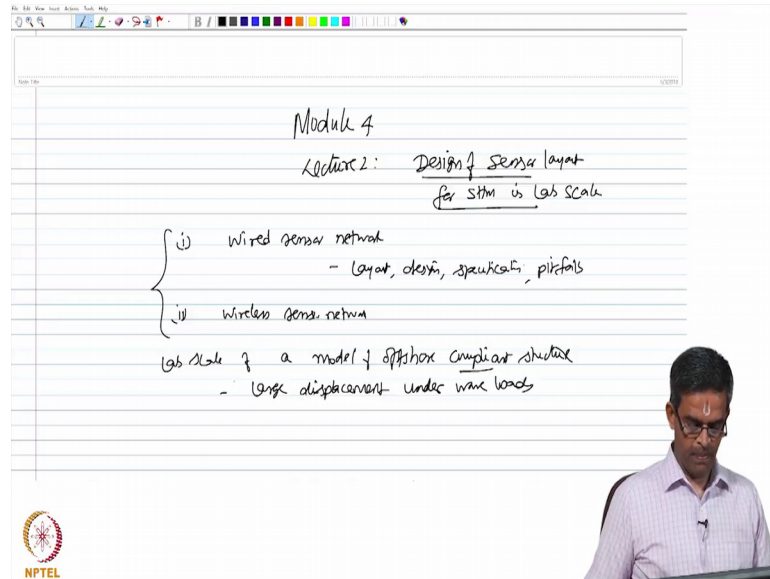 File Edit View Insert Actions Tools Help
B I
Note Title
1/3/2018
Module 4
Lecture 2: Design of Sensor layout
for SHM in Lab Scale
(i) Wired sensor network
- Layout, design, specification, pitfalls
(ii) Wireless sensor network
Lab scale of a model of offshore compliant structure
- large displacement under wave loads
NPTEL